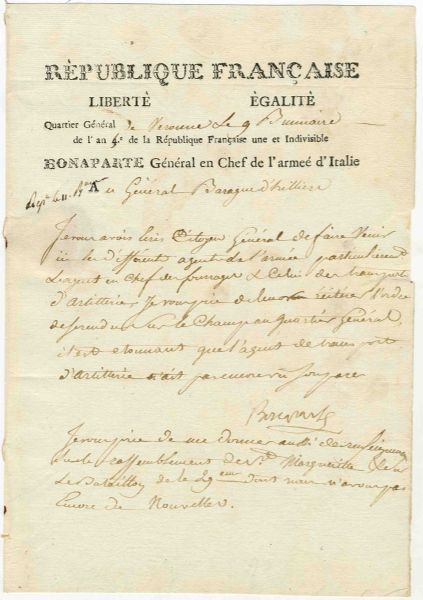 RÈPUBLIQUE FRANÇAISE
LIBERTÈ ÈGALITÈ
Quartier Général de Veronne Le 9 Brumaire
de l'an 5.e de la République Française une et Indivisible
BONAPARTE Général en Chef de l'armeé d'Italie
Au Général Baraguedhilliers
Je vous avois écris Citoyen Général de faire Venir
ici les differents agents de l'armée particulierement
L'agent en Chef des fourages & Celui des transports
d'Artillerie, Je vous prie de leur réitérer l'ordre
de se rendre sur le Champ au quartier Général,
il est etonnant que l'agent de transport
d'Artillerie n'ait pas encore
Bonaparte
Je vous prie de me donner aussi des renseignemens
sur le rassemblement de Ste Margueritte &
Le Bataillon de la 29eme dont nous n'avons pas
Encore de Nouvelles.